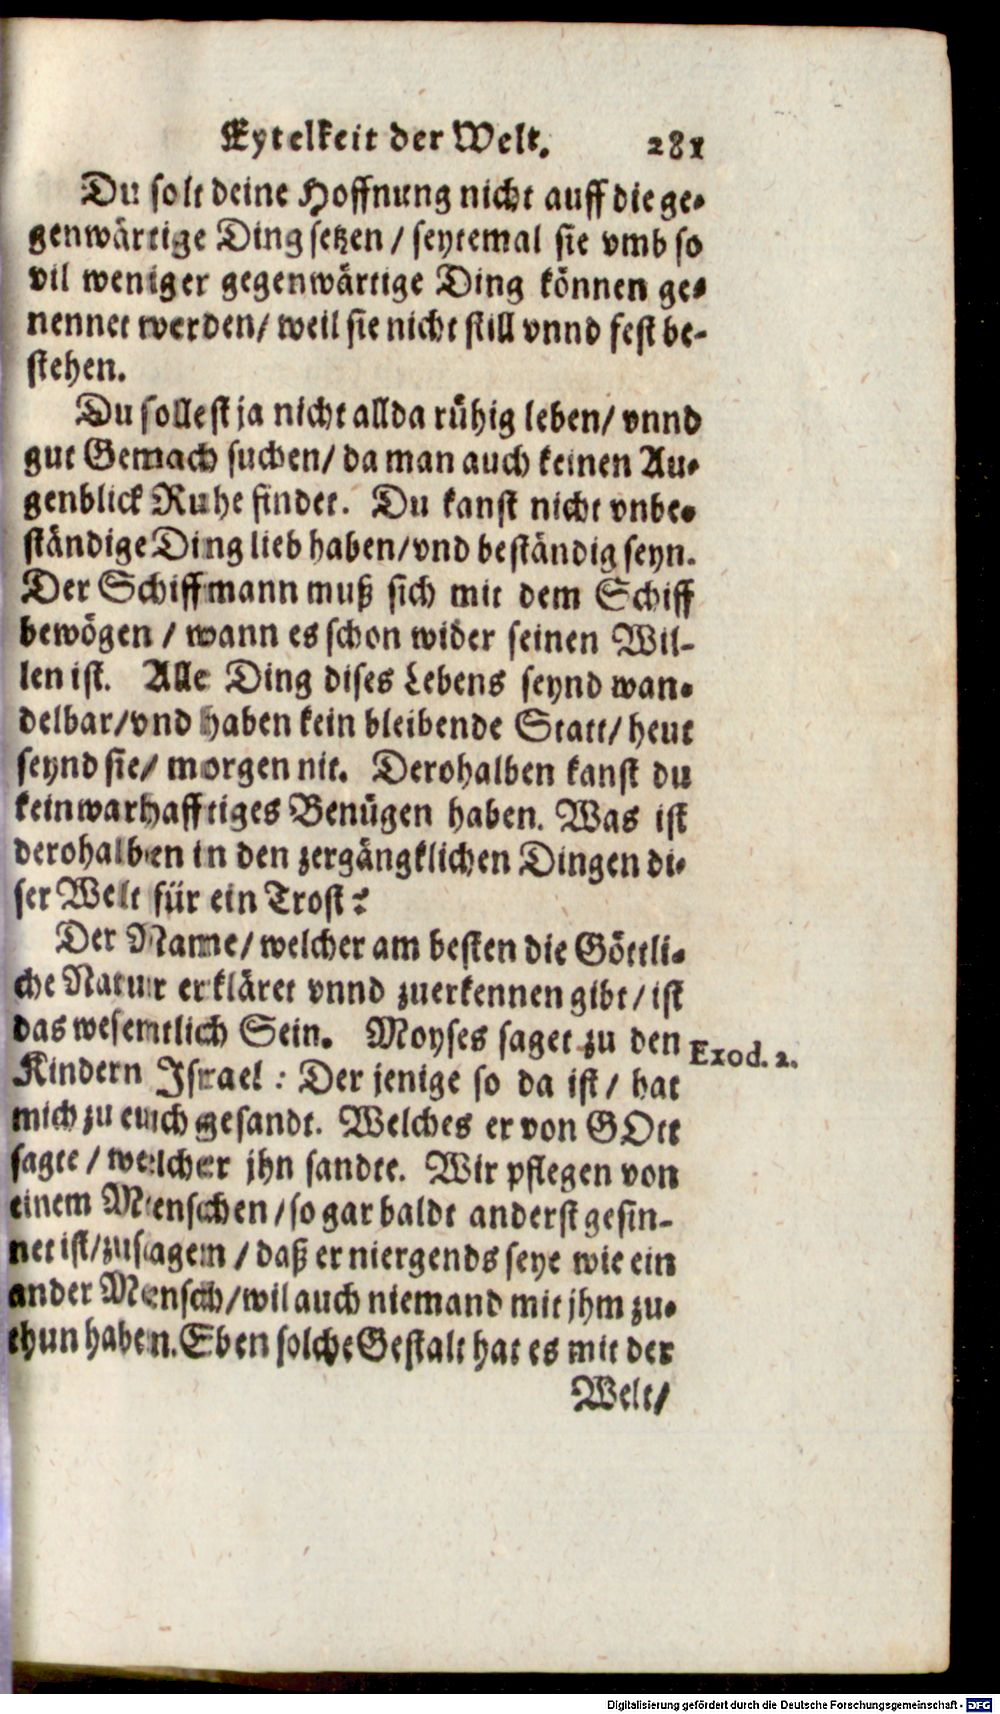 Eytelkeit der Welt. 281
Du solt deine Hoffnung nicht auff die ge-
genwärtige Ding setzen / seytemal sie vmb so
vil weniger gegenwärtige Ding können ge-
nennet werden / weil sie nicht still vnnd fest be-
stehen.
Du sollest ja nicht allda rühig leben / vnnd
gut Gemach suchen / da man auch keinen Au-
genblick Ruhe findet. Du kanst nicht vnbe-
ständige Ding lieb haben / vnd beständig seyn.
Der Schiffmann muß sich mit dem Schiff
bewögen / wann es schon wider seinen Wil-
len ist. Alle Ding dises Lebens seynd wan-
delbar / vnd haben kein bleibende Statt / heut
seynd sie / morgen nit. Derohalben kanst du
kein warhafftiges Benügen haben. Was ist
derohalben in den zergängklichen Dingen di-
ser Welt für ein Trost?
Der Name / welcher am besten die Göttli-
che Natur erkläret vnnd zuerkennen gibt / ist
das wesentlich Sein. Moyses saget zu den
Exod. 2.
Kindern Israel: Der jenige so da ist / hat
mich zu euch gesandt. Welches er von GOtt
sagte / welcher jhn sandte. Wir pflegen von
einem Menschen / so gar baldt anderst gesin-
net ist / zusagen / daß er niergends seye wie ein
ander Mensch / wil auch niemand mit jhm zu-
thun haben. Eben solche Gestalt hat es mit der
Welt /
Digitalisierung gefördert durch die Deutsche Forschungsgemeinschaft - DFG